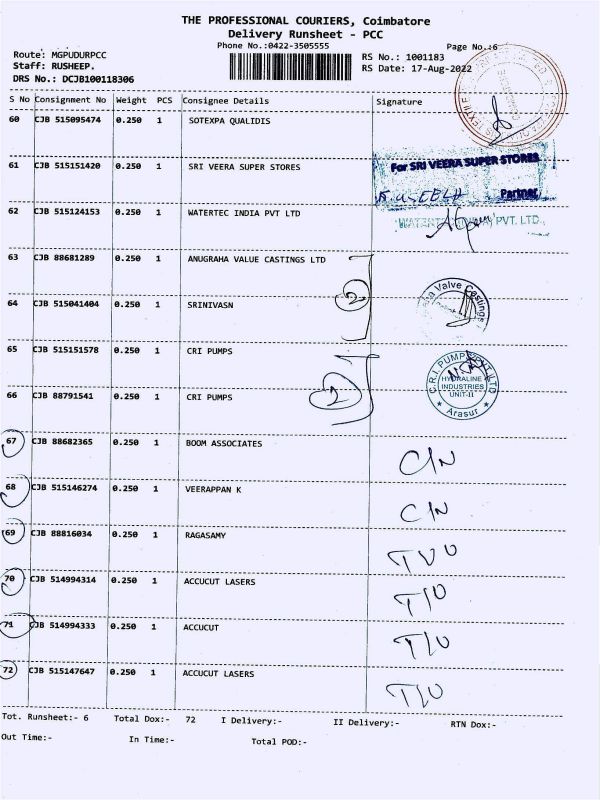 THE PROFESSIONAL COURIERS, Coimbatore
Delivery Runsheet - PCC
Phone No.:0422-3505555
Page No.:6
Route: MGPUDURPCC
RS No.: 1001183
Staff: RUSHEEP.
RS Date: 17-Aug-2022
DRS No.: DCJB100118306
S No Consignment No Weight PCS Consignee Details Signature
60 CJB 515095474 0.250 1 SOTEXPA QUALIDIS
61 CJB 515151420 0.250 1 SRI VEERA SUPER STORES
For SRI VEERA SUPER STORES
Partner
62 CJB 515124153 0.250 1 WATERTEC INDIA PVT LTD
PVT. LTD.
63 CJB 88681289 0.250 1 ANUGRAHA VALUE CASTINGS LTD
64 CJB 515041404 0.250 1 SRINIVASN
2
Valve Castings
65 CJB 515151578 0.250 1 CRI PUMPS
C.R.I. PUMPS PVT LTD
HYDRALINE
INDUSTRIES
UNIT-II
Arasur
66 CJB 88791541 0.250 1 CRI PUMPS
2
67 CJB 88682365 0.250 1 BOOM ASSOCIATES C/N
68 CJB 515146274 0.250 1 VEERAPPAN K C/N
69 CJB 88816034 0.250 1 RAGASAMY
70 CJB 514994314 0.250 1 ACCUCUT LASERS T/U
71 CJB 514994333 0.250 1 ACCUCUT T/U
72 CJB 515147647 0.250 1 ACCUCUT LASERS T/U
Tot. Runsheet:- 6 Total Dox:- 72 I Delivery:- II Delivery:- RTN Dox:-
Out Time:- In Time:- Total POD:-